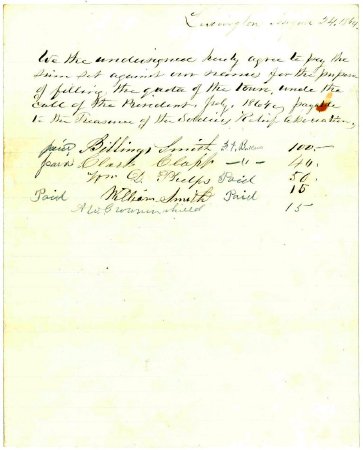 Lexington August 24, 1864,
We the undersigned hereby agree to pay the
sum set against our names for the purpose
of filling the quota of the Town, under the
call of the President, July, 1864, payable
to the Treasurer of the Soldiers Relief Association,
paid Billings Smith 100.-
paid Clark Clapp -"- 40.
Wm D. Phelps Paid 50.
Paid William Smith Paid 15
A W Crowninshield 15-